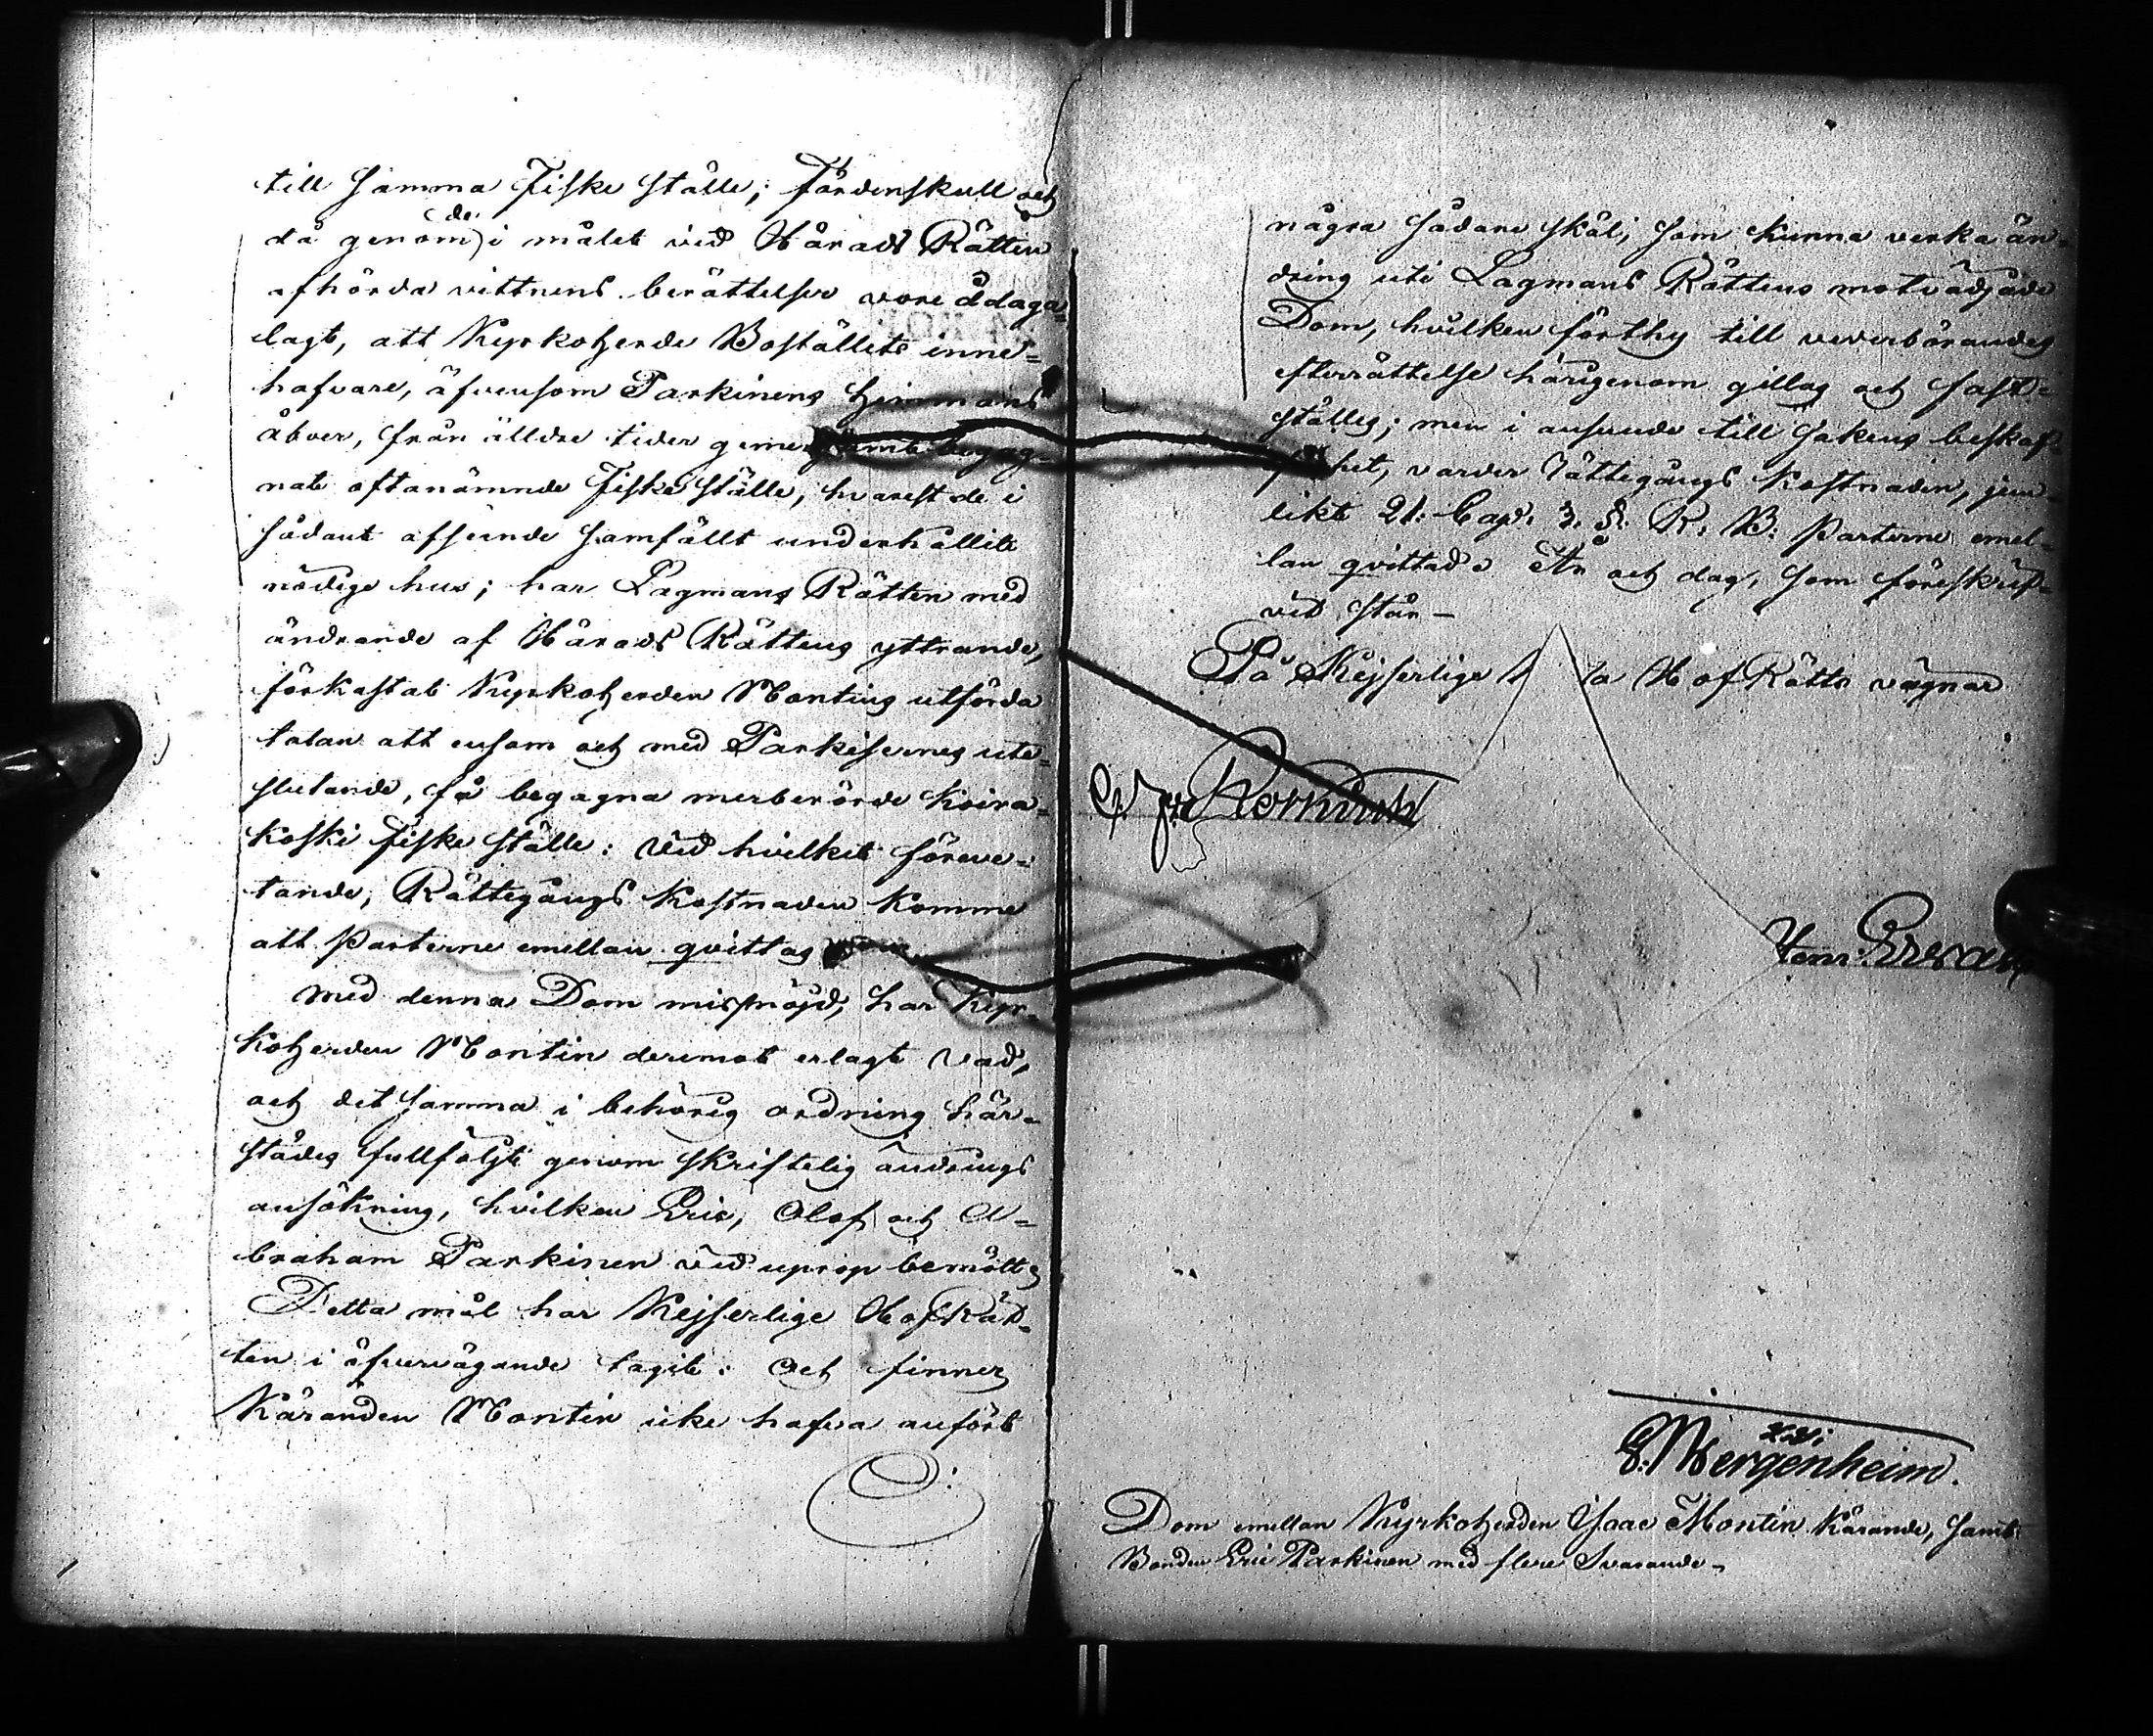 till samma Fiske ställe; Fördenskull och
då genom de i målet vid Härads Rätten
afhörda vittnens berättelser vore ådaga-
lagt, att Kyrkoherde Boställets inne-
hafvare, äfvensom Parkinens Hemmans
åboer, från älldre tider gemensamt begag-
nat oftanämnde Fiske ställe, hvarest de i
sådant afseende samfällt underhållit
nödige hus; har Lagmans Rätten med
ändrande af Härads Rättens yttrande,
förkastat Kyrkoherden Montins utförda
talan att ensam och med Parkisernes ute-
slutande, få begagna merberörde Koira-
koski Fiske ställe: Vid hvilket föreve-
tande, Rättegångs Kostnaden komme
att Parterne emellan qvittas
Med denna Dom missnöjd, har Kyr-
koherden Montin deremot erlagt Vad,
och det samma i behörig ordning här-
städes fullföljt genom skriftelig ändrings
ansökning, hvilken Eric, Olof och A-
braham Parkinen vid uprop bemött;
Detta mål har Kejserlige HofRät-
ten i öfvervägande tagit: Och finner
Käranden Montin icke hafva anfört
några sådane skäl, som kunna verka än-
dring uti Lagmans Rättens motvädjade
Dom, hvilken förthy till vederbörandes
efterrättelse härigenom gillas och fast-
ställes; men i anseende till Sakens beskaf-
fenhet, varder Rättegångs Kostnaden, jem-
likt 21: Cap: 3. §. R: B: Parterne emel-
lan qvittad. År och dag, som föreskrif-
vit står –
På Kejserlige HofRätts vägnar
Henr.
E. Mergenheim.
Dom emellan Kyrkoherden Isaac Montin Kärande, samt
Bonden Eric Parkinen med flere Svarande –